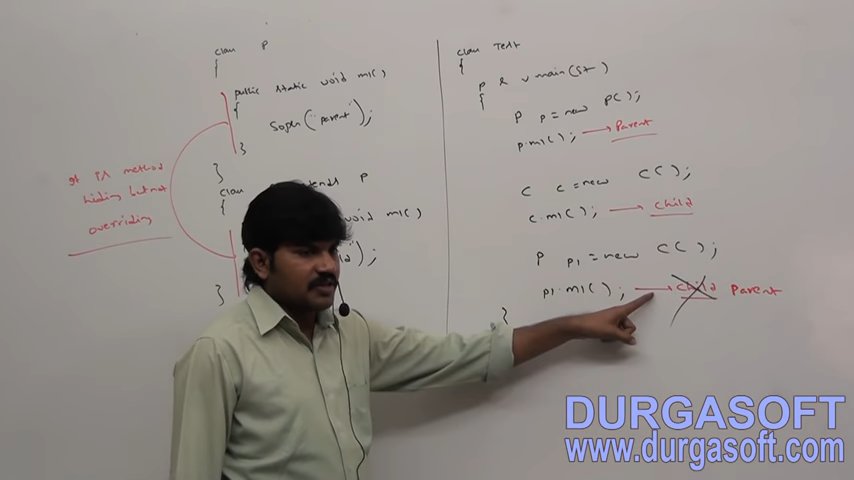 class P
{
public static void m1()
{
Sopln("parent");
}
}
class
tends P
{
void m1()
ld");
}
It is method
hiding but not
overriding
class Test
{
p s v main(St)
{
P p = new P();
p.m1(); → Parent
C c = new C();
c.m1(); → child
P p1 = new C();
p1.m1(); → child Parent
}
DURGASOFT
www.durgasoft.com